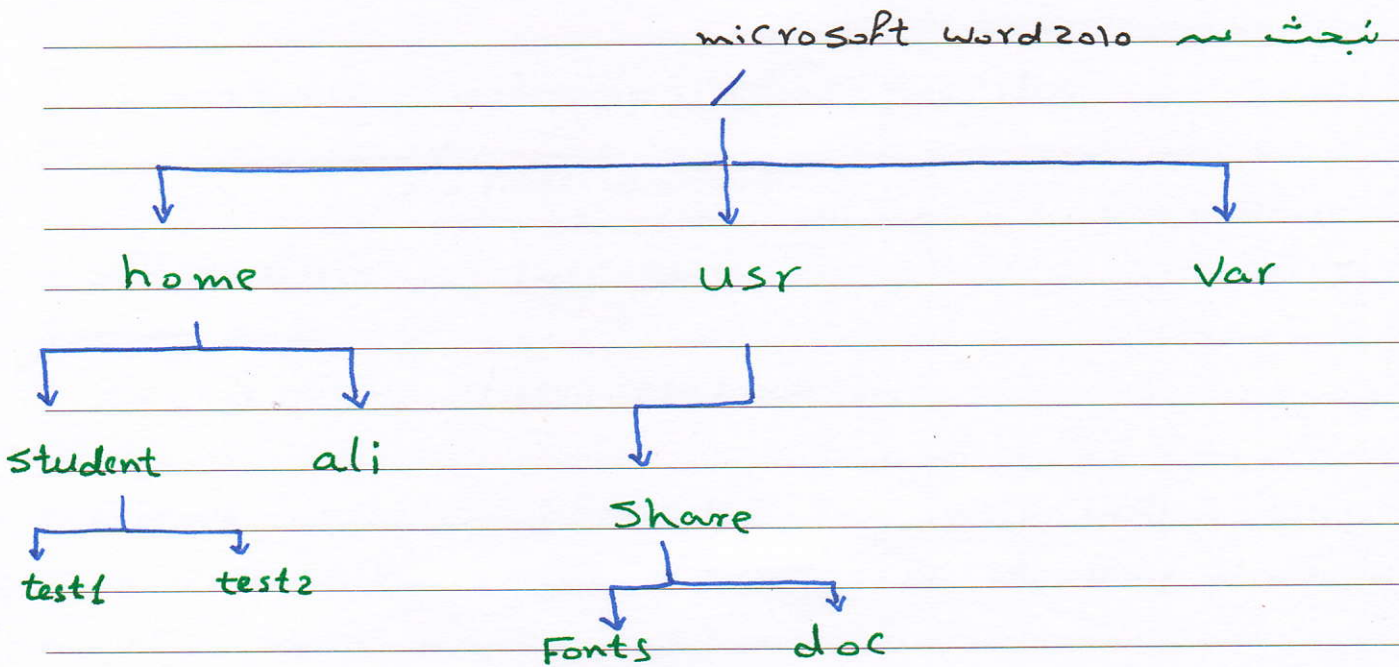 نبحث عن microsoft word 2010
/
home usr Var
student ali
Share
test1 test2
Fonts doc